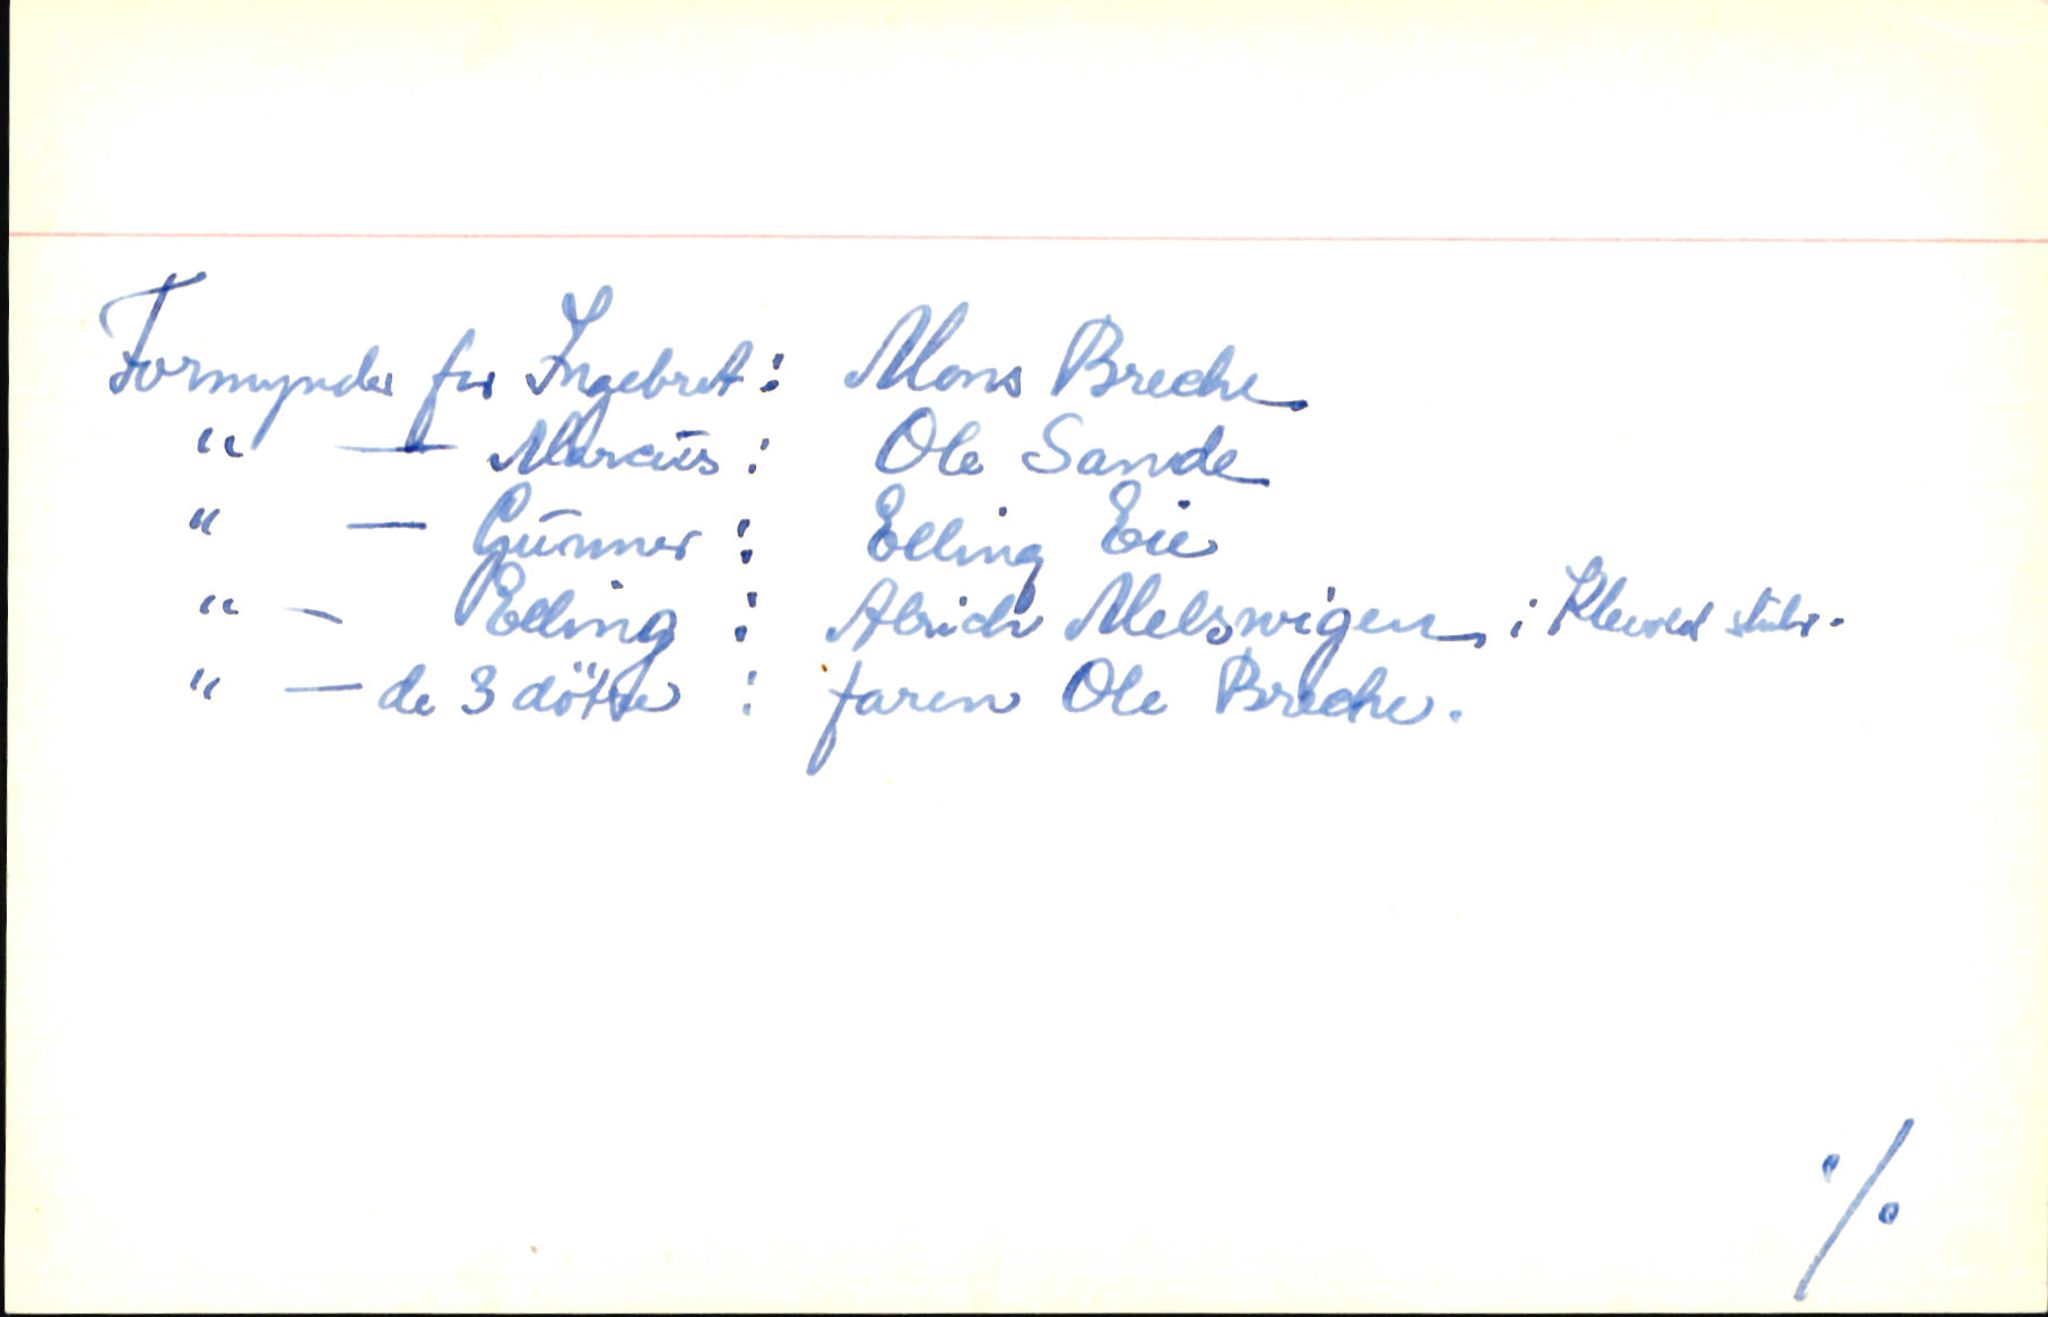 Formynder for Ingebret: Mons Breche
" — Marcus: Ole Sande
" — Gunner: Elling Eie
" — Elling: Alrich Melswigen, i
" — de 3 dötre: faren Ole Breche.
%